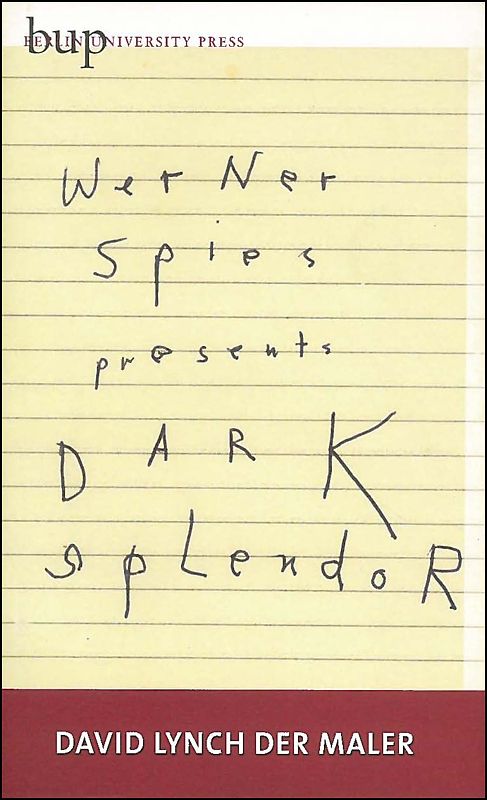 bup
BERLIN UNIVERSITY PRESS
Wer Ner
Spies
presents
DARK
spLendoR
DAVID LYNCH DER MALER